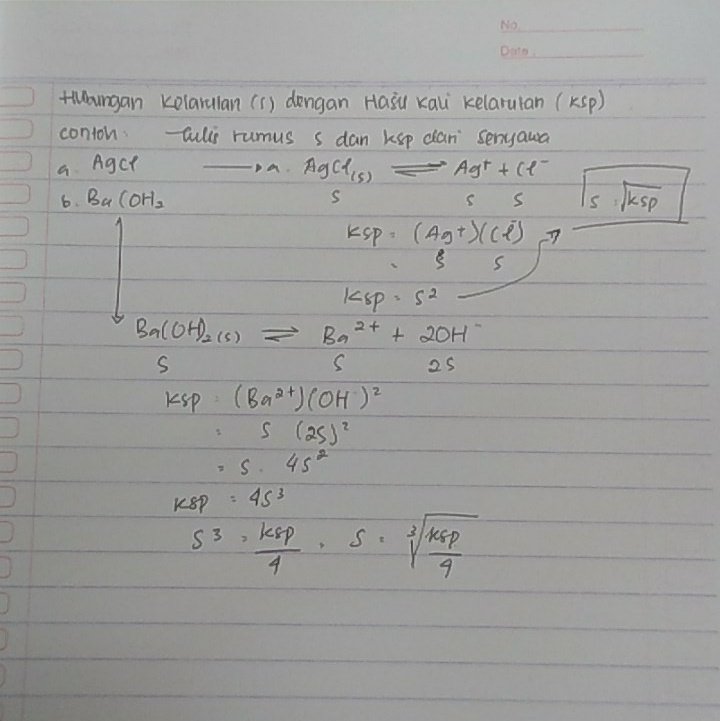 No.
Date.
Hubungan Kelarutan (s) dengan Hasil Kali Kelarutan (Ksp)
contoh: Tulis rumus s dan ksp dari senyawa
a. AgCl → a. AgCl(s) ⇌ Ag⁺ + Cl⁻
b. Ba(OH₂ s s s s = √ksp
Ksp = (Ag⁺)(Cl⁻)
= s s
Ksp = s²
Ba(OH)₂(s) ⇌ Ba²⁺ + 2OH⁻
s s 2s
Ksp = (Ba²⁺)(OH⁻)²
= s (2s)²
= s. 4s²
Ksp = 4s³
s³ = ksp/4, s = ³√ksp/4